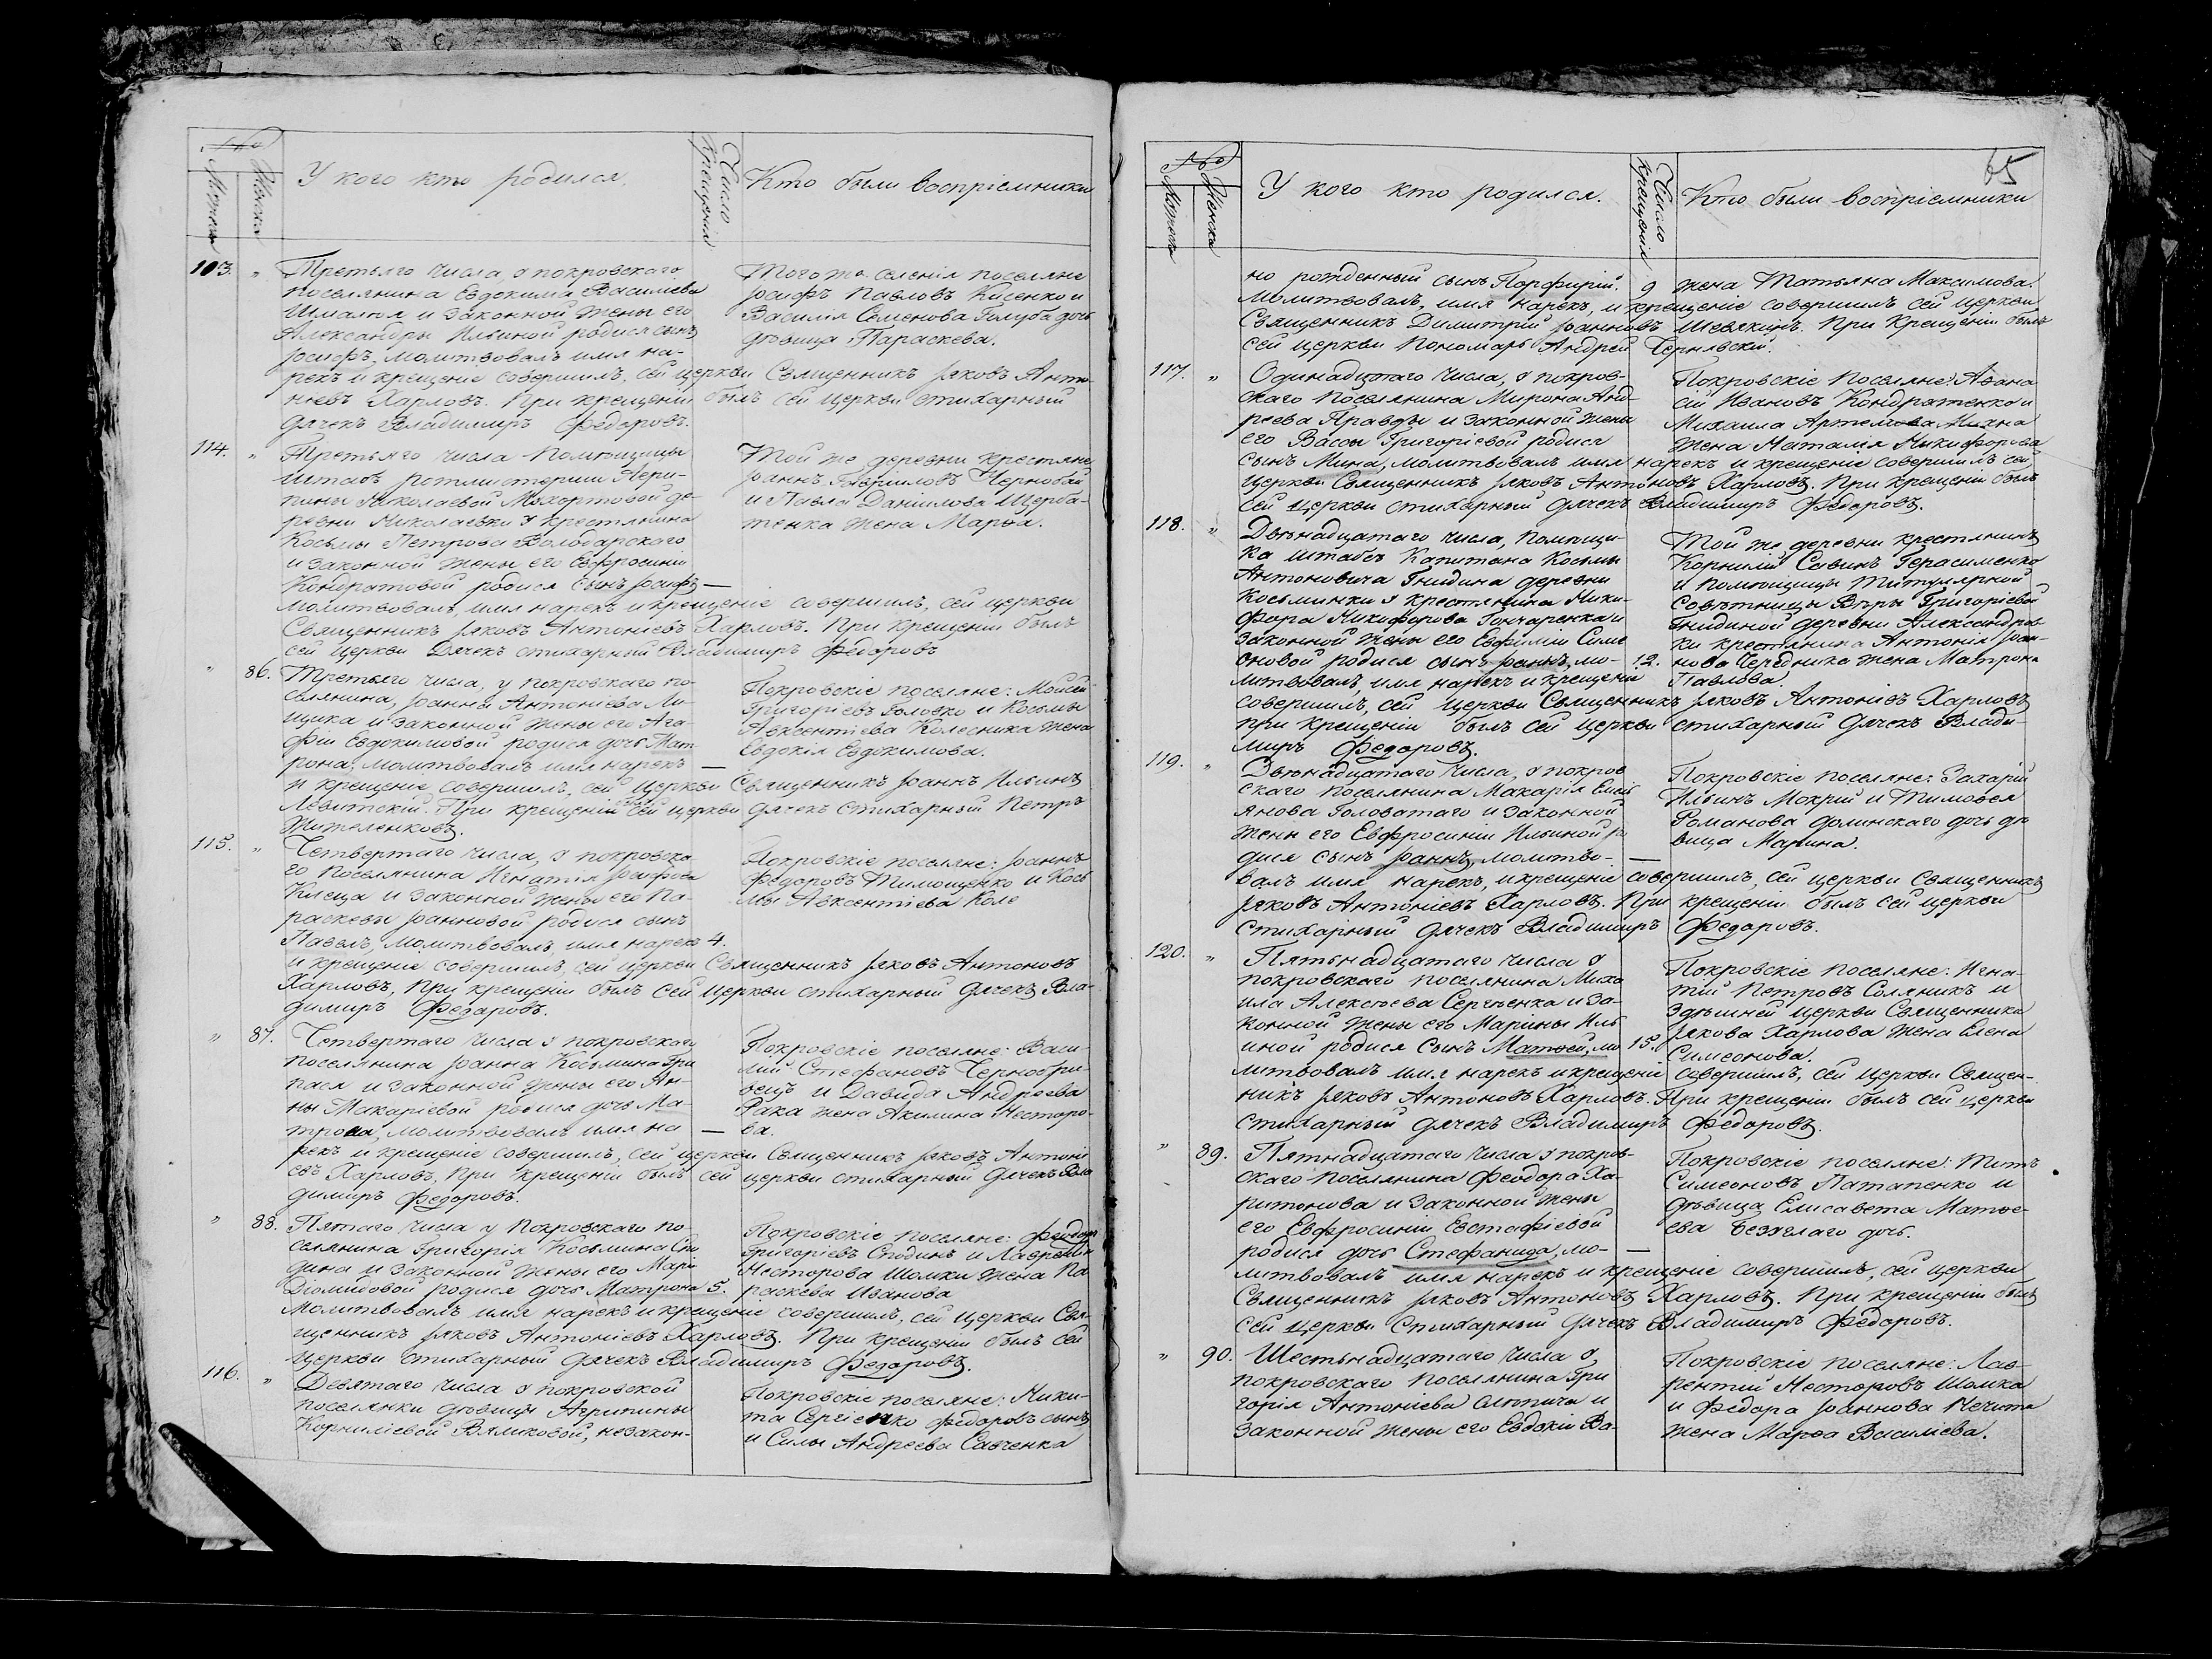 №
Мужеск
Женска
У кого кто родился.
Число Крещенія
Кто были воспріемники
103. „ Третьяго числа у покровскаго
поселянина Евдокима Василиева
и законной жены его
Александры Ильиной родися сынъ
Іосифъ, молитвовалъ имя на-
рекъ и крещеніе совершилъ, сей церкви Священникъ Іяковъ Анто-
ніевъ Харловъ. При крещеніи былъ сей церкви стихарный
дячекъ Владимиръ Федоровъ.
Того же селенія поселяне
Іосифъ Павловъ Кисенко и
Василія Семенова Голуба дочь
дѣвица Параскева.
114. „ Третьяго числа Помѣщицы
штабъ ротмистерши Агри-
пины Николаевой Мохортовой де-
ревни Николаевки у крестянина
Косьмы Петрова Володарскаго
и законной жены его Евфросиніи
Кондратовой родися сынъ Іосифъ —
молитвовалъ, имя нарекъ и крещеніе совершилъ, сей церкви
Священникъ Іяковъ Антоніевъ Харловъ. При крещеніи былъ
сей церкви Дячекъ стихарный Владимиръ Федоровъ
Той же деревни крестяне
Іоаннъ Гавриловъ Чернобай
и Павла Даніилова Щерба-
тенка жена Марѳа.
„ 86. Третьяго числа, у покровскаго по-
селянина, Іоанна Антоніева Ли-
щика и законной жены его Ага-
фіи Евдокимовой родися дочь Мат-
рона, молитвовалъ имя нарекъ —
и крещеніе совершилъ, сей церкви Священникъ Іоаннъ Ильинъ
Левитскій. При крещеніи былъ сей церкви дячекъ стихарный Петръ
Жителенковъ.
Покровскіе поселяне: Моисей
Григоріевъ Головко и Косьмы
Авксентіева Колесника жена
Евдокія Евдокимова.
115. „ Четвертаго числа, у покровска-
го поселянина Игнатія Іосифова
Клеща и законной жены его Па-
раскевы Іоанновой родися сынъ
Павелъ, молитвовалъ, имя нарекъ 4.
и крещеніе совершилъ, сей церкви Священникъ Іяковъ Антоновъ
Харловъ, При крещеніи былъ сей церкви стихарный дячекъ Вла-
димиръ Федоровъ.
Покровскіе поселяне: Іоаннъ
Федоровъ Тимощенко и Кось
мы Авксентіева Коле
„ 87. Четвертаго числа у покровскаго
поселянина Іоанна Косьмина Гри
паса и законной жены его Ан-
ны Макаріевой родися дочь Ма-
трона, молитвовалъ имя на —
рекъ и крещеніе совершилъ, сей церкви Священникъ Іяковъ Антоні
евъ Харловъ, При крещеніи былъ сей церкви стихарный дячекъ Вла
димиръ Федоровъ.
Покровскіе поселяне: Васи-
лій Стефановъ Чернобри-
вецъ и Давида Андреева
Рака жена Акилина Несторо-
ва.
„ 88. Пятаго числа у Покровскаго по-
селянина Григорія Косьмина Спо
дина и законной жены его Маріи
Діомидовой родися дочь Матрона 5.
молитвовалъ имя нарекъ и крещеніе совершилъ, сей церкви Свя-
щенникъ Іяковъ Антоніевъ Харловъ. При крещеніи былъ сей
церкви стихарный дячекъ Владимиръ Федоровъ.
Покровскіе поселяне: Феодоръ
Григоріевъ Сподинъ и Лаврентія
Несторова Шомки жена Па
раскева Иванова
116. „ Девятаго числа у покровской
поселянки дѣвицы Агрипины
Корниліевой Вялиховой, незакон-
Покровскіе поселяне: Ники-
та Сергіенко Федоровъ сынъ
и Силы Андреева Савченка
65
№
Мужеск
Женска
У кого кто родился.
Число Крещенія
Кто были воспріемники
но рожденный сынъ Порфирій. 9 жена Татьяна Максимова.
Молитвовалъ, имя нарекъ, и крещеніе совершилъ сей церкви
Священникъ Димитрій Іоанновъ Шевякинъ. При Крещеніи былъ
сей церкви Пономарь Андрей Чернявскій.
117. „ Одинадцатаго числа, у покров-
скаго Поселянина Мирона Анд-
реева Правды и законной жены
его Васы Григоріевой родися
сынъ Мина, молитвовалъ имя нарекъ и крещеніе совершилъ сей
Церкви Священникъ Іяковъ Антоновъ Харловъ. При крещеніи былъ
сей церкви стихарный дячекъ Владимиръ Федоровъ.
Покровскіе Поселяне: Аѳана
сій Ивановъ Кондратенко и
Михаила Артемова Михна
жена Наталія Никифорова
118. „ Двѣнадцатаго числа, помѣщи-
ка штабсъ Капитана Косьмы
Антоновича Гнидина деревни
Косьминки у крестянина Ники-
фора Никифорова Гончаренка и
законной жены его Евфиміи Симе
оновой родися сынъ Іоаннъ, мо- 12.
литвовалъ, имя нарекъ и крещеніе
совершилъ, сей церкви Священникъ Іяковъ Антоніевъ Харловъ
при крещеніи былъ сей церкви стихарный дячекъ Влади-
миръ Федоровъ.
Той же деревни крестянинъ
Корнилій Савинъ Герасименко
и Помѣщицы Титулярной
Совѣтницы Вѣры Григоріевой
Гнидиной деревни Александров-
ки крестянина Антонія Іоан-
нова Чередника жена Матрона
Павлова.
119. „ Двѣнадцатаго числа, у покров
скаго поселянина Макарія Емель
янова Головатаго и законной
жены его Евфросиніи Ильиной ро
дися сынъ Іоаннъ, молитво- —
валъ имя нарекъ, и крещеніе совершилъ, сей церкви Священникъ
Іяковъ Антоніевъ Харловъ. При крещеніи былъ сей церкви
стихарный дячекъ Владимиръ Федоровъ.
Покровскіе поселяне: Захарій
Ильинъ Мокрій и Тимоѳея
Романова Долинскаго дочь дѣ
вица Марина.
120. „ Пятьнадцатаго числа у
покровскаго поселянина Миха
ила Алексѣева Сергѣенка и за-
конной жены его Марины Иль
иной родися сынъ Матѳей, мо 15.
литвовалъ имя нарекъ и крещеніе совершилъ, сей церкви Священ-
никъ Іяковъ Антоновъ Харловъ. При крещеніи былъ сей церкви
стихарный дячекъ Владимиръ Федоровъ.
Покровскіе поселяне: Игна-
тій Петровъ Соляникъ и
здѣшней церкви Священника
Іякова Харлова жена Елена
Симеонова.
„ 89. Пятнадцатаго числа у покров-
скаго поселянина Феодора Ха-
ритонова и законной жены
его Евфросиніи Евстафіевой
родися дочь Стефанида, мо- —
литвовалъ имя нарекъ и крещеніе совершилъ, сей церкви
Священникъ Іяковъ Антоновъ Харловъ. При крещеніи былъ
сей церкви Стихарный дячекъ Владимиръ Федоровъ.
Покровскіе поселяне: Титъ
Симеоновъ Патапенко и
дѣвица Елисавета Матѳе-
ева Безуглаго дочь.
„ 90. Шестьнадцатаго числа у
покровскаго поселянина Гри
горія Антоніева и
законной жены его Евдокіи Ва-
Покровскіе поселяне: Лав-
рентій Несторовъ Шомка
и Федора Іоаннова Нечита
жена Марѳа Василіева.